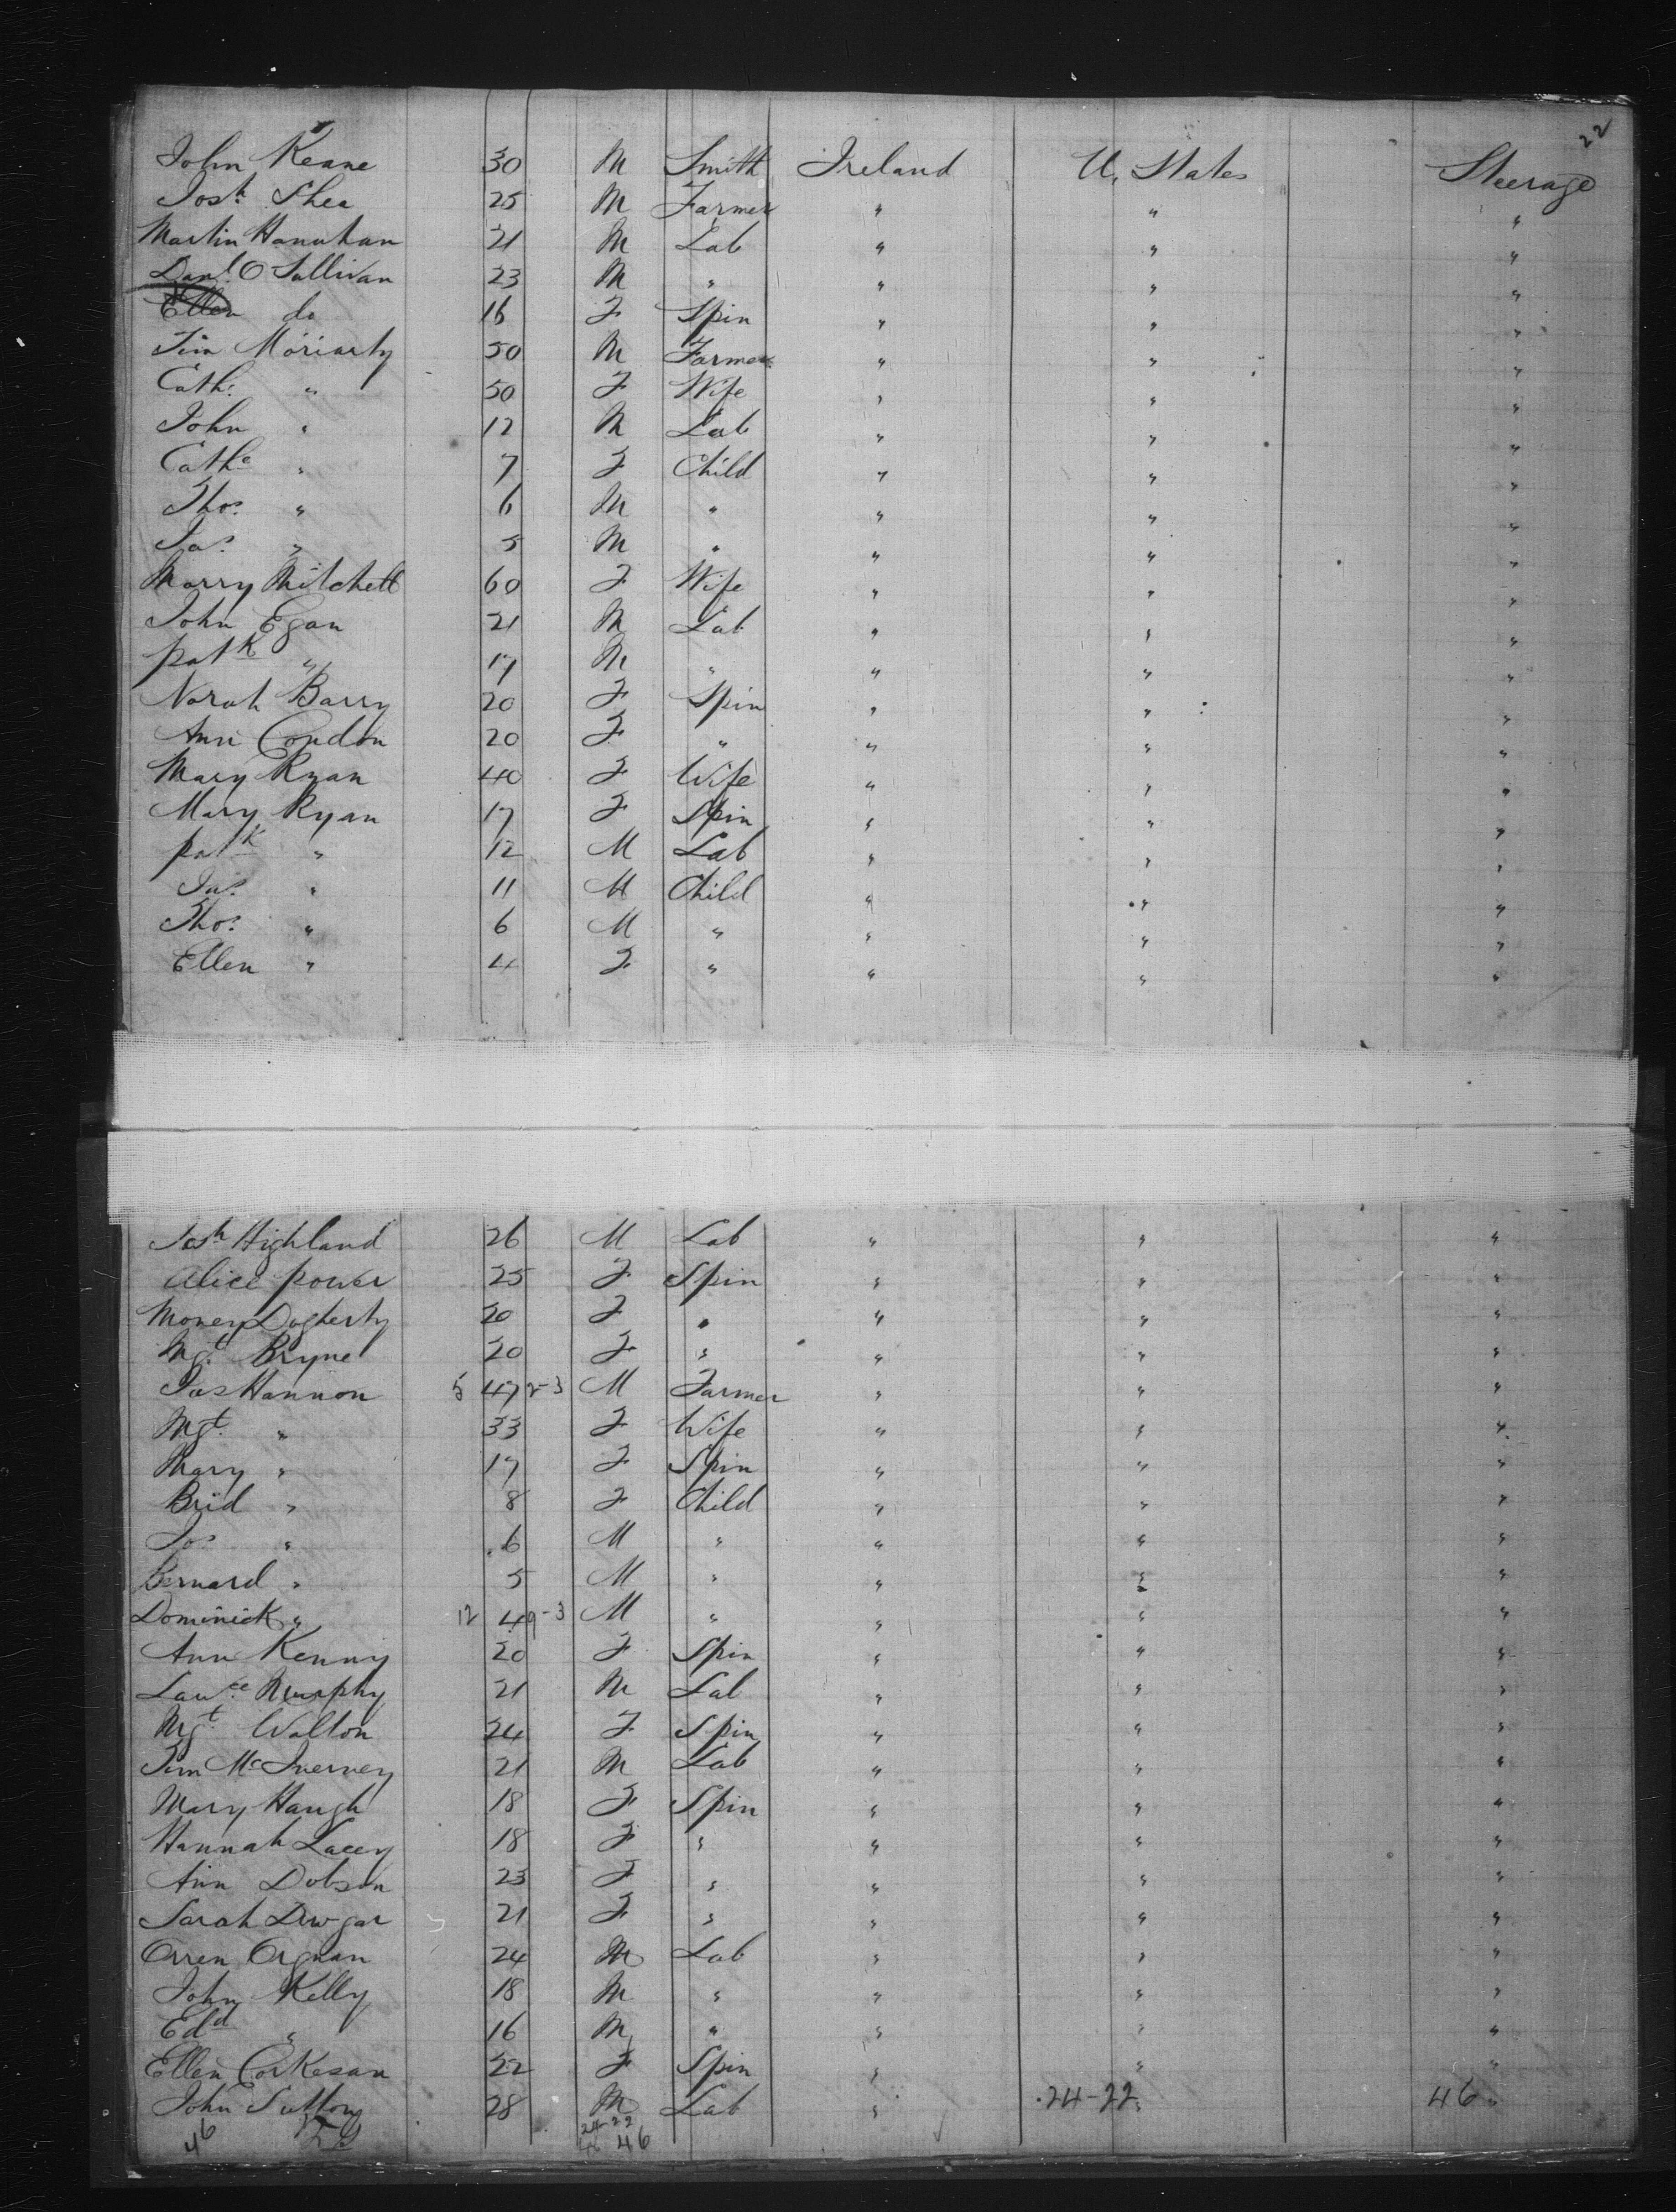 22
John Keane 30 M Smith Ireland U. States Steerage
Josh Shea 25 M Farmer " " "
Martin Hanahan 21 M Lab " " "
Danl O Sullivan 23 M " " " "
Ellen do 16 F Spin " " "
Tim Moriarty 50 M Farmer " " "
Cath. " 50 F Wife " " "
John " 12 M Lab " " "
Cathe " 7 F Child " " "
Thos " 6 M " " " "
Jas " 5 M " " " "
Marry Mitchell 60 F Wife " " "
John Egan 21 M Lab " " "
patk " 17 M " " " "
Norah Barry 20 F Spin " " "
Ann Condon 20 F " " " "
Mary Ryan 40 F Wife " " "
Mary Ryan 17 F Spin " " "
patk " 12 M Lab " " "
Jas " 11 M Child " " "
Thos " 6 M " " " "
Ellen " 4 F " " " "
Josh Highland 26 M Lab " " "
Alice power 25 F Spin " " "
Dogherty 20 F " " " "
Mgt Bryne 20 F " " " "
Jas Hannon 5 47 2-3 M Farmer " " "
Mgt " 33 F Wife " " "
Mary " 17 F Spin " " "
Brid " 8 F Child " " "
Jos " 6 M " " " "
Bernard " 5 M " " " "
Dominick " 12 4 9-3 M " " " "
Ann Kenny 20 F Spin " " "
Lawce Murphy 21 M Lab " " "
Mgt Walton 24 F Spin " " "
Tim McInerney 21 M Lab " " "
Mary Haugh 18 F Spin " " "
Hannah Lacey 18 F " " " "
Ann Dobson 23 F " " " "
Sarah 21 F " " " "
Orren 24 M Lab " " "
John Kelly 18 M " " " "
Edd " 16 M " " " "
Ellen Corkesan 22 F Spin " " "
John Sutton 28 M Lab " 24-22 " 46 "
46 24-22 46 46